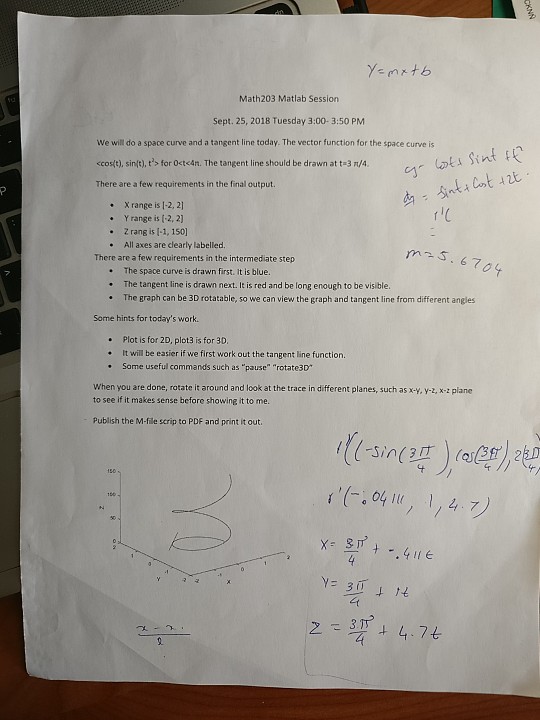 Y=mx+b
Math203 Matlab Session
Sept. 25, 2018 Tuesday 3:00- 3:50 PM
We will do a space curve and a tangent line today. The vector function for the space curve is
<cos(t), sin(t), t²> for 0<t<4π. The tangent line should be drawn at t=3 π/4.
There are a few requirements in the final output.
• X range is [-2, 2]
• Y range is [-2, 2]
• Z rang is [-1, 150]
• All axes are clearly labelled.
m=5.6704
There are a few requirements in the intermediate step
• The space curve is drawn first. It is blue.
• The tangent line is drawn next. It is red and be long enough to be visible.
• The graph can be 3D rotatable, so we can view the graph and tangent line from different angles
Some hints for today's work.
• Plot is for 2D, plot3 is for 3D.
• It will be easier if we first work out the tangent line function.
• Some useful commands such as "pause" "rotate3D"
When you are done, rotate it around and look at the trace in different planes, such as x-y, y-z, x-z plane
to see if it makes sense before showing it to me.
Publish the M-file scrip to PDF and print it out.
r'(-.0411, 1, 4.7)
X= 3π/4 + -.411t
Y= 3π/4 + 1t
Z = 3π/4 + 4.7t
150
100
50
0
Z
2
1
0
-1
-2
Y
-2
-1
0
1
2
X